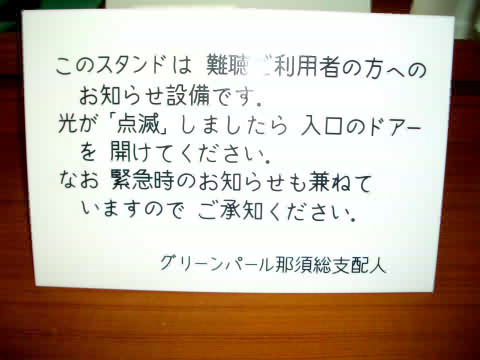 このスタンドは 難聴ご利用者の方への
お知らせ設備です.
光が「点滅」しましたら 入口のドアー
を 開けてください.
なお 緊急時のお知らせも兼ねて
いますので ご承知ください.
グリーンパール那須総支配人